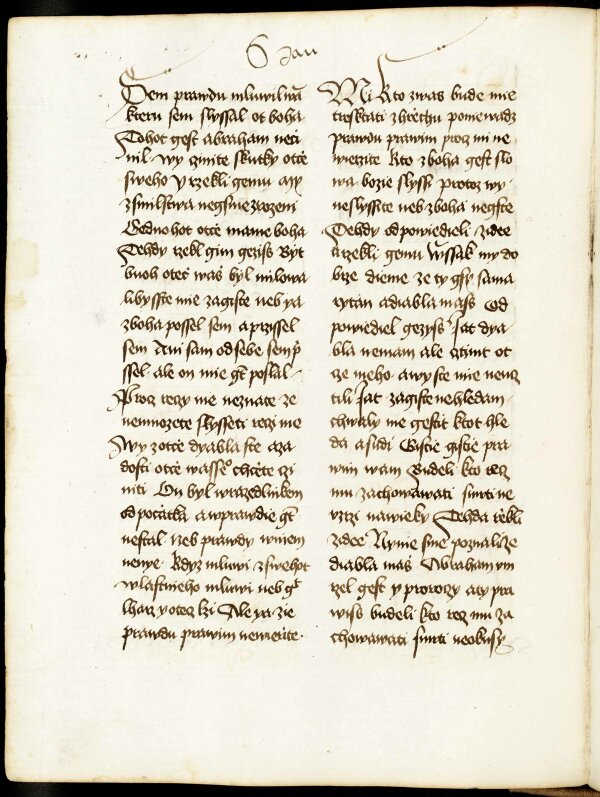 6 Jan
Sem prawdu mluwil wã
kteru sem slyssal ot boha
Tohot gest abraham neči
nil · wy činite skutky otcě
sweho Y rzekli gemu My
zsmilstwa negsme zrozeni
Gednoho otcě mame boha
Tehdy rzekl gim geziss Byt
buoh otecz wáš byl milowa
li byste mie zagiste neb ya
zboha possel sem a przissel
sem Ani sam od sebe sem p̃
ssel ale on mie gt̃ poslal ·
Procz rzeczy me neznate ze
nemuozete slysseti rzeczi me
Wy zotcě dyabla ste aza
dosti otcě wasseº chcěte czi
niti On byl wrazedlnikem
od pocátka a wprawdie gt̃
nestal nebo prawdy wniem
nenye · Kdyz mluwi zsweho
wlastnieho mluwi neb gt̃
lharz y otecz lzi Ale ya zie
prawdu prawim newěrite ·
Mi Kto zwas bude mie
tresktati zhrzechu poniewadz
prawdu prawim procz mi ne
wierzite Kto zboha gest slo
wa bozie slyssi protoz wy
neslyssite neb zboha negste
Tehdy odpowiedieli zidee
a rzekli gemu Wssak my do
brze dieme ze ty gsy sama
rytan a diabla mass Od
powiediel gezyss Jat dya
bla nemam ale cztim ot
cze meho · a wy ste mie neucz
tili Jat zagiste nehledam
chwaly me gestit ktot hle
da a sudi Gistie gistie pra
wim wam Budeli kto rzecz
mu zachowawati smrti ne
vzrzi nawieky Tehda rzekli
zidee Nynie sme poznali ze
diabla maš Abraham vm
rzel gest y proroczy a ty pra
wiss budeli kto rzecz mu za
chowawati smrti neokusy